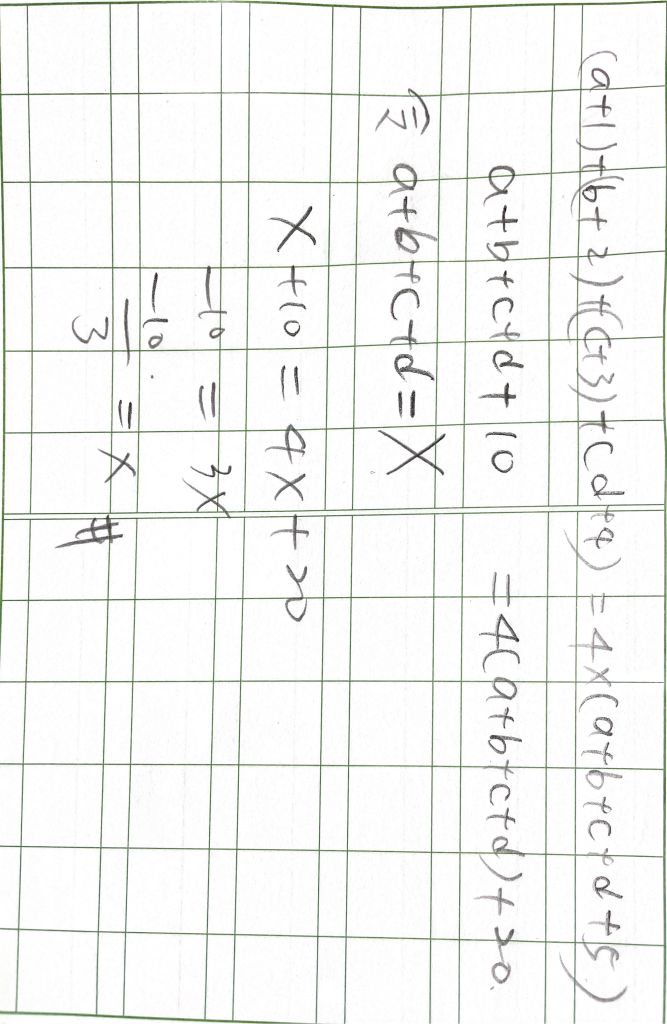 (a+1)+(b+2)+(c+3)+(d+4) = 4×(a+b+c+d+5)
a+b+c+d+10 = 4(a+b+c+d)+20
令 a+b+c+d = X
X+10 = 4X+20
-10 = 3X
-10/3 = X #